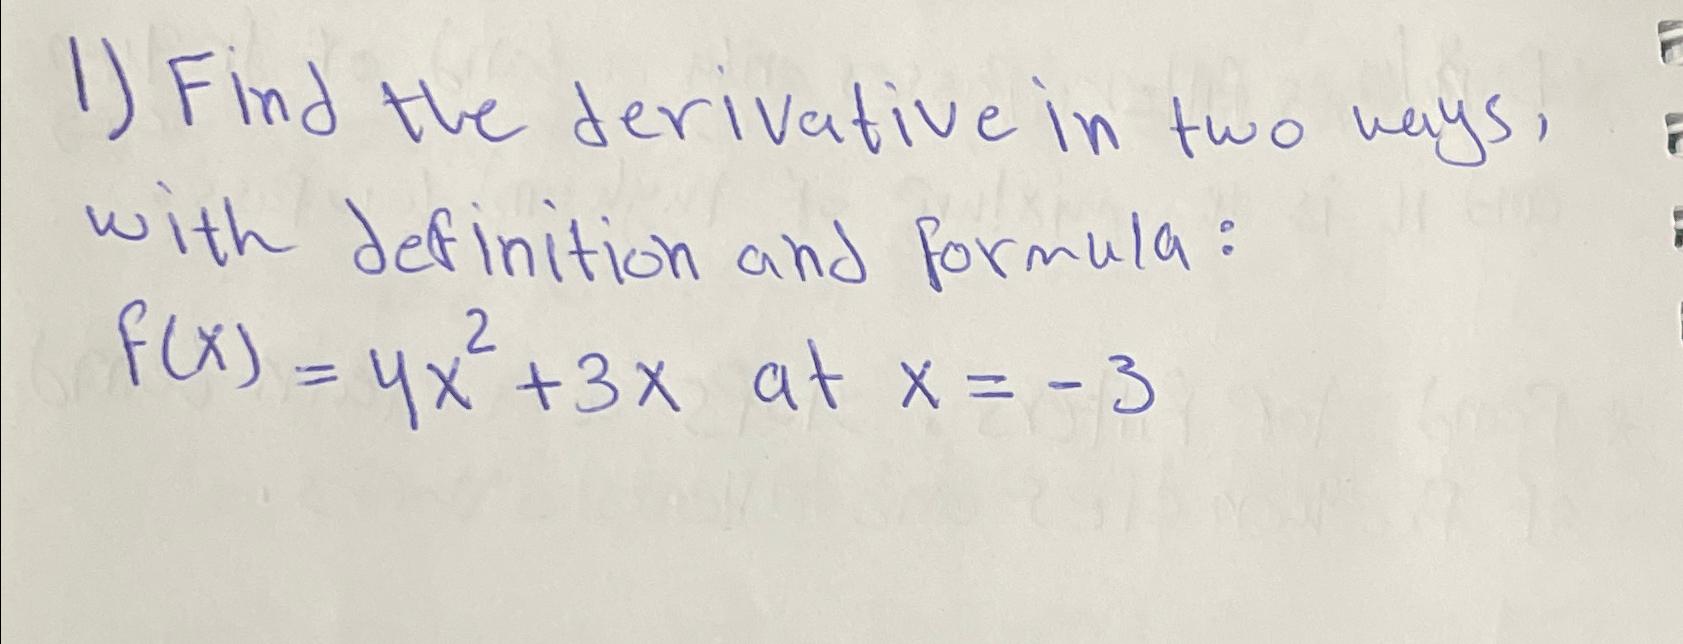 1) Find the derivative in two ways,
with definition and formula:
f(x) = 4x² + 3x at x = -3